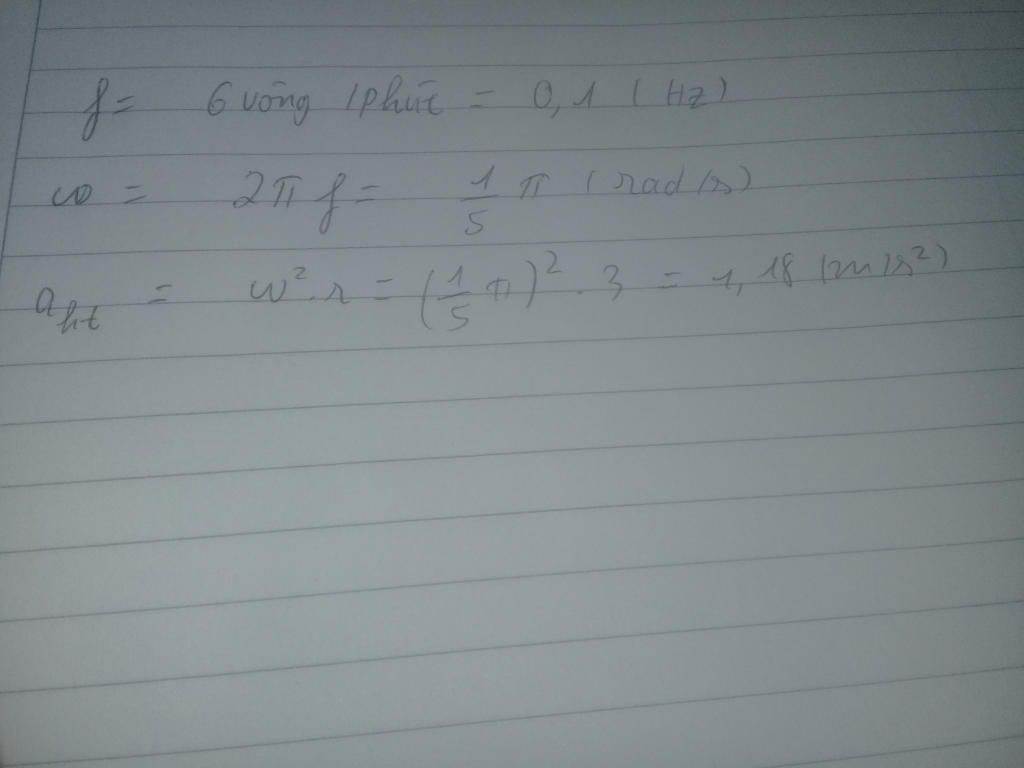 f = 6 vòng /phút = 0,1 (Hz)
ω = 2π f = 1/5 π (rad/s)
a_ht = ω².r = (1/5 π)² . 3 = 1,18 (m/s²)